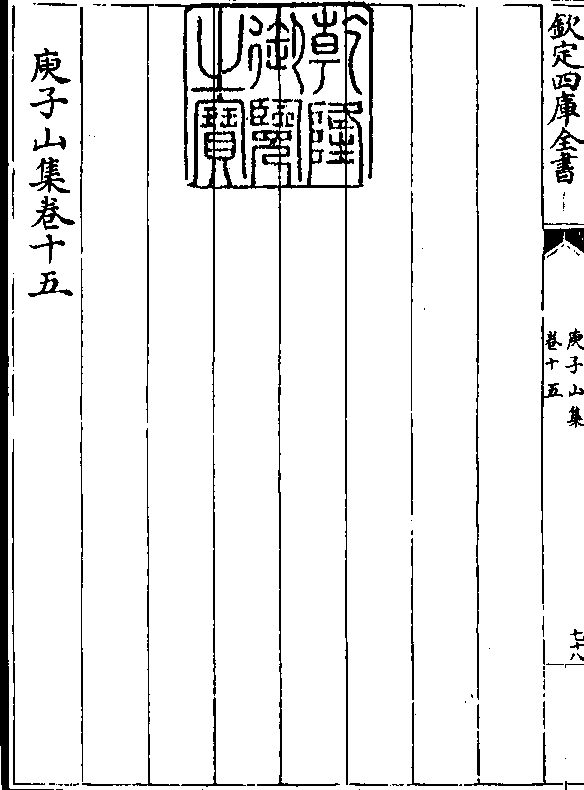 欽定四庫全書
庾子山集
卷十五
七十八
乾隆
御覽
之寶
庾子山集卷十五